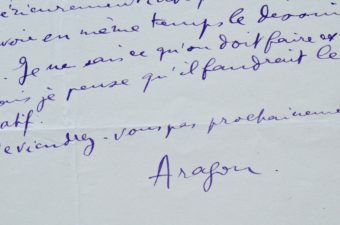 voie en même temps le dessin
. Je ne sais ce qu'on doit faire ex
je pense qu'il faudrait le
atif.
eviendrez-vous pas prochaineme
Aragon.